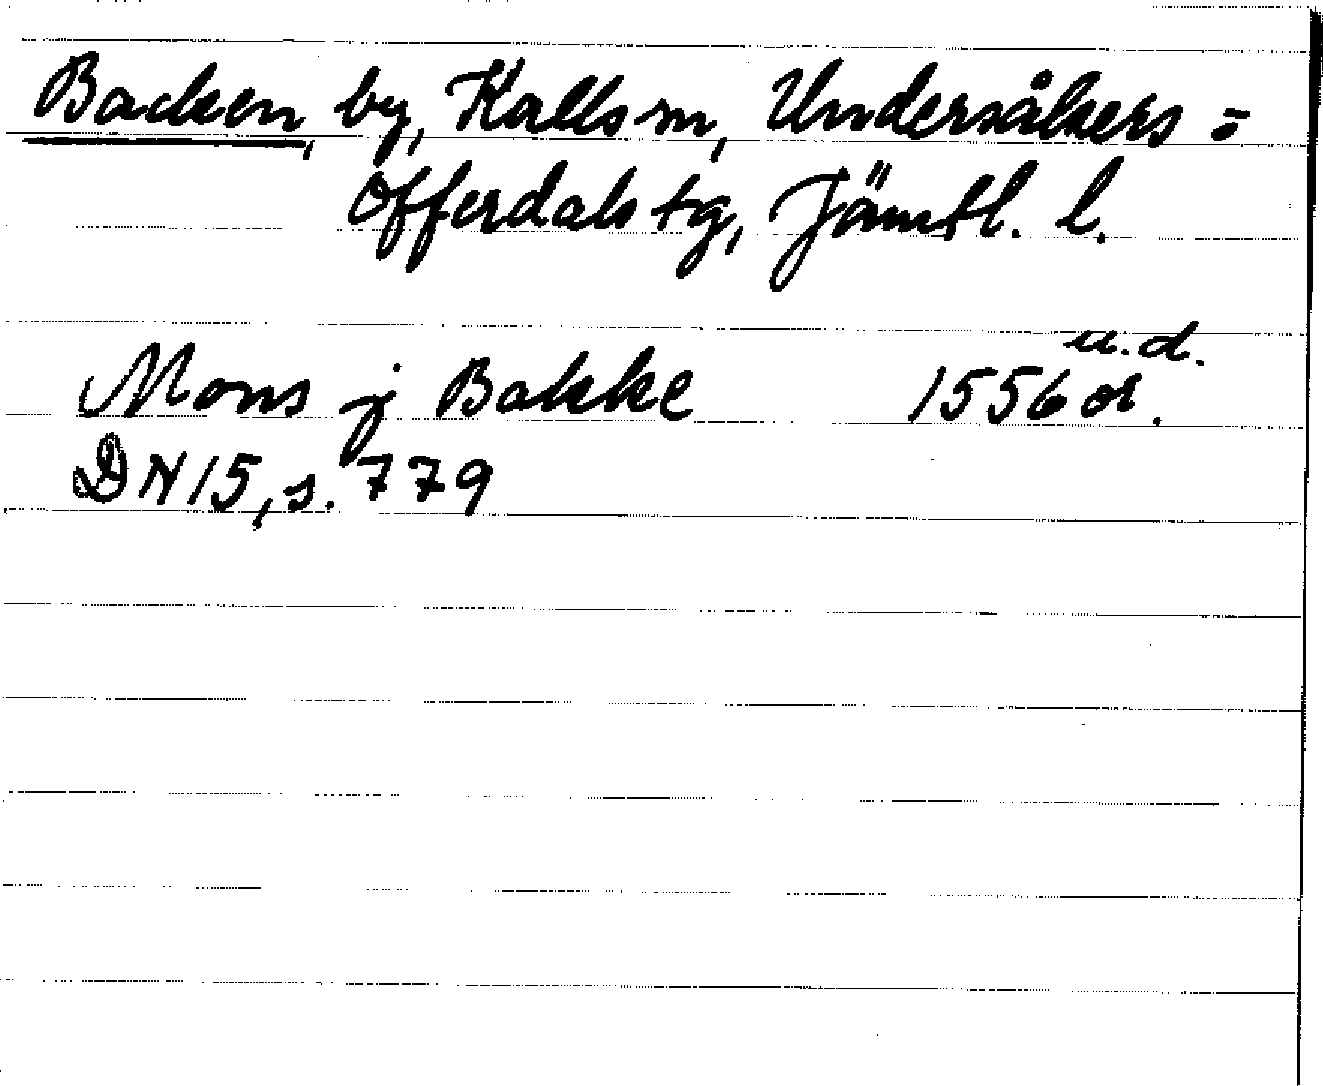 Backen, by, Kalls sn, Undersåkers=
Offerdals tg, Jämtl. l.
u.d.
Mons j Bakke 1556 or.
DN 15, s. 779